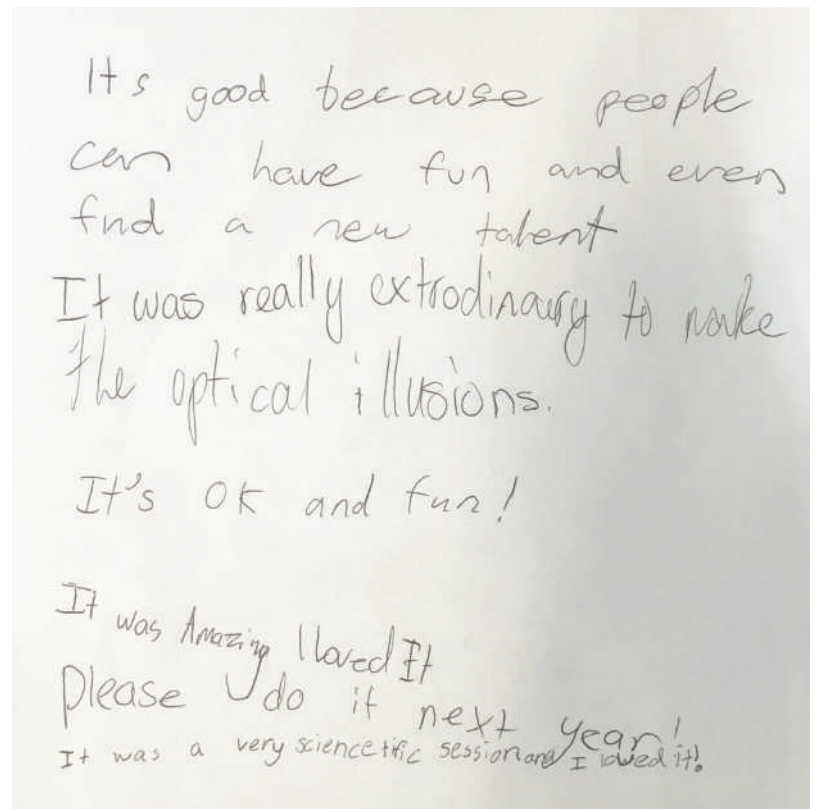 Its good because people
can have fun and even
find a new talent
It was really extrodinary to make
the optical illusions.
It's OK and fun!
It was Amazing I loved It
Please do it next year!
It was a very sciencetific session and I loved it!